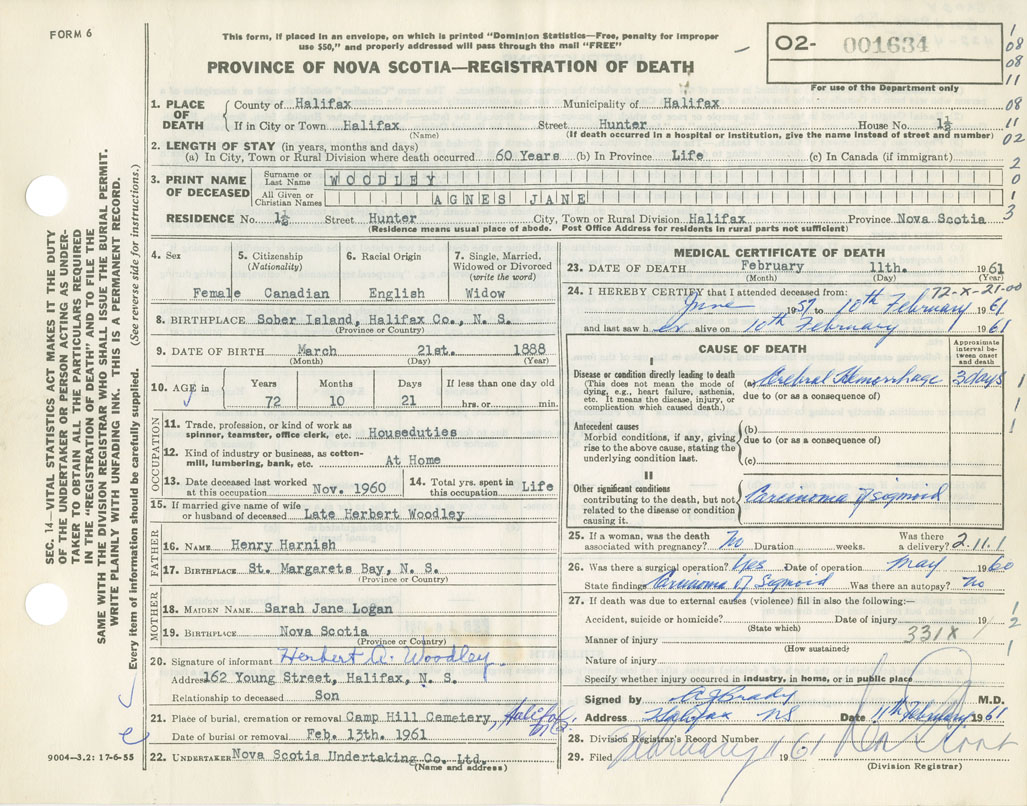 FORM 6
This form, if placed in an envelope, on which is printed "Dominion Statistics—Free, penalty for improper
use $50," and properly addressed will pass through the mail "FREE"
PROVINCE OF NOVA SCOTIA—REGISTRATION OF DEATH
O2- 001634
For use of the Department only
1. PLACE OF DEATH
County of Halifax Municipality of Halifax
If in City or Town Halifax Street Hunter House No. 1½
(Name) (If death occurred in a hospital or institution, give the name instead of street and number)
2. LENGTH OF STAY (in years, months and days)
(a) In City, Town or Rural Division where death occurred 60 Years (b) In Province Life (c) In Canada (if immigrant)
3. PRINT NAME OF DECEASED
Surname or Last Name WOODLEY
All Given or Christian Names AGNES JANE
RESIDENCE No. 1½ Street Hunter City, Town or Rural Division Halifax Province Nova Scotia
(Residence means usual place of abode. Post Office Address for residents in rural parts not sufficient)
4. Sex
Female
5. Citizenship
(Nationality)
Canadian
6. Racial Origin
English
7. Single, Married,
Widowed or Divorced
(write the word)
Widow
8. BIRTHPLACE Sober Island, Halifax Co., N. S.
(Province or Country)
9. DATE OF BIRTH March 21st. 1888
(Month) (Day) (Year)
10. AGE in
Years Months Days If less than one day old
72 10 21 hrs. or min.
OCCUPATION
11. Trade, profession, or kind of work as
spinner, teamster, office clerk, etc. Houseduties
12. Kind of industry or business, as cotton-
mill, lumbering, bank, etc. At Home
13. Date deceased last worked
at this occupation Nov. 1960
14. Total yrs. spent in
this occupation Life
15. If married give name of wife
or husband of deceased Late Herbert Woodley
FATHER
16. NAME Henry Harnish
17. BIRTHPLACE St. Margarets Bay, N. S.
(Province or Country)
MOTHER
18. MAIDEN NAME Sarah Jane Logan
19. BIRTHPLACE Nova Scotia
(Province or Country)
20. Signature of informant Herbert A. Woodley
Address 162 Young Street, Halifax, N. S.
Relationship to deceased Son
21. Place of burial, cremation or removal Camp Hill Cemetery, Halifax, N.S.
Date of burial or removal Feb. 13th. 1961
22. UNDERTAKER Nova Scotia Undertaking Co. Ltd.
(Name and address)
MEDICAL CERTIFICATE OF DEATH
23. DATE OF DEATH February 11th. 1961
(Month) (Day) (Year)
72-X-21-00
24. I HEREBY CERTIFY that I attended deceased from:
June 1957 to 10th February 1961
and last saw her alive on 10th February 1961
CAUSE OF DEATH
Approximate
interval be-
tween onset
and death
I
Disease or condition directly leading to death
(This does not mean the mode of
dying, e.g., heart failure, asthenia,
etc. It means the disease, injury, or
complication which caused death.)
(a) Cerebral Hemorrhage 3 days
due to (or as a consequence of)
Antecedent causes
Morbid conditions, if any, giving
rise to the above cause, stating the
underlying condition last.
(b)
due to (or as a consequence of)
(c)
II
Other significant conditions
contributing to the death, but not
related to the disease or condition
causing it.
Carcinoma of sigmoid
25. If a woman, was the death
associated with pregnancy? No Duration weeks. Was there
a delivery? 2.11.1
26. Was there a surgical operation? Yes Date of operation May 1960
State findings Carcinoma of Sigmoid Was there an autopsy? No
27. If death was due to external causes (violence) fill in also the following:—
Accident, suicide or homicide? Date of injury 19
(State which)
Manner of injury 331X
(How sustained)
Nature of injury
Specify whether injury occurred in industry, in home, or in public place
Signed by Brady M.D.
Address Halifax NS Date 11th February 1961
28. Division Registrar's Record Number
29. Filed February 1961
(Division Registrar)
SEC. 14—VITAL STATISTICS ACT MAKES IT THE DUTY
OF THE UNDERTAKER OR PERSON ACTING AS UNDER-
TAKER TO OBTAIN ALL THE PARTICULARS REQUIRED
IN THE "REGISTRATION OF DEATH" AND TO FILE THE
SAME WITH THE DIVISION REGISTRAR WHO SHALL ISSUE THE BURIAL PERMIT.
WRITE PLAINLY WITH UNFADING INK. THIS IS A PERMANENT RECORD.
Every item of information should be carefully supplied. (See reverse side for instructions.)
9004—3.2: 17-6-55
1
08
08
11
08
11
02
2
0
1
3
1
1
1
1
2
1